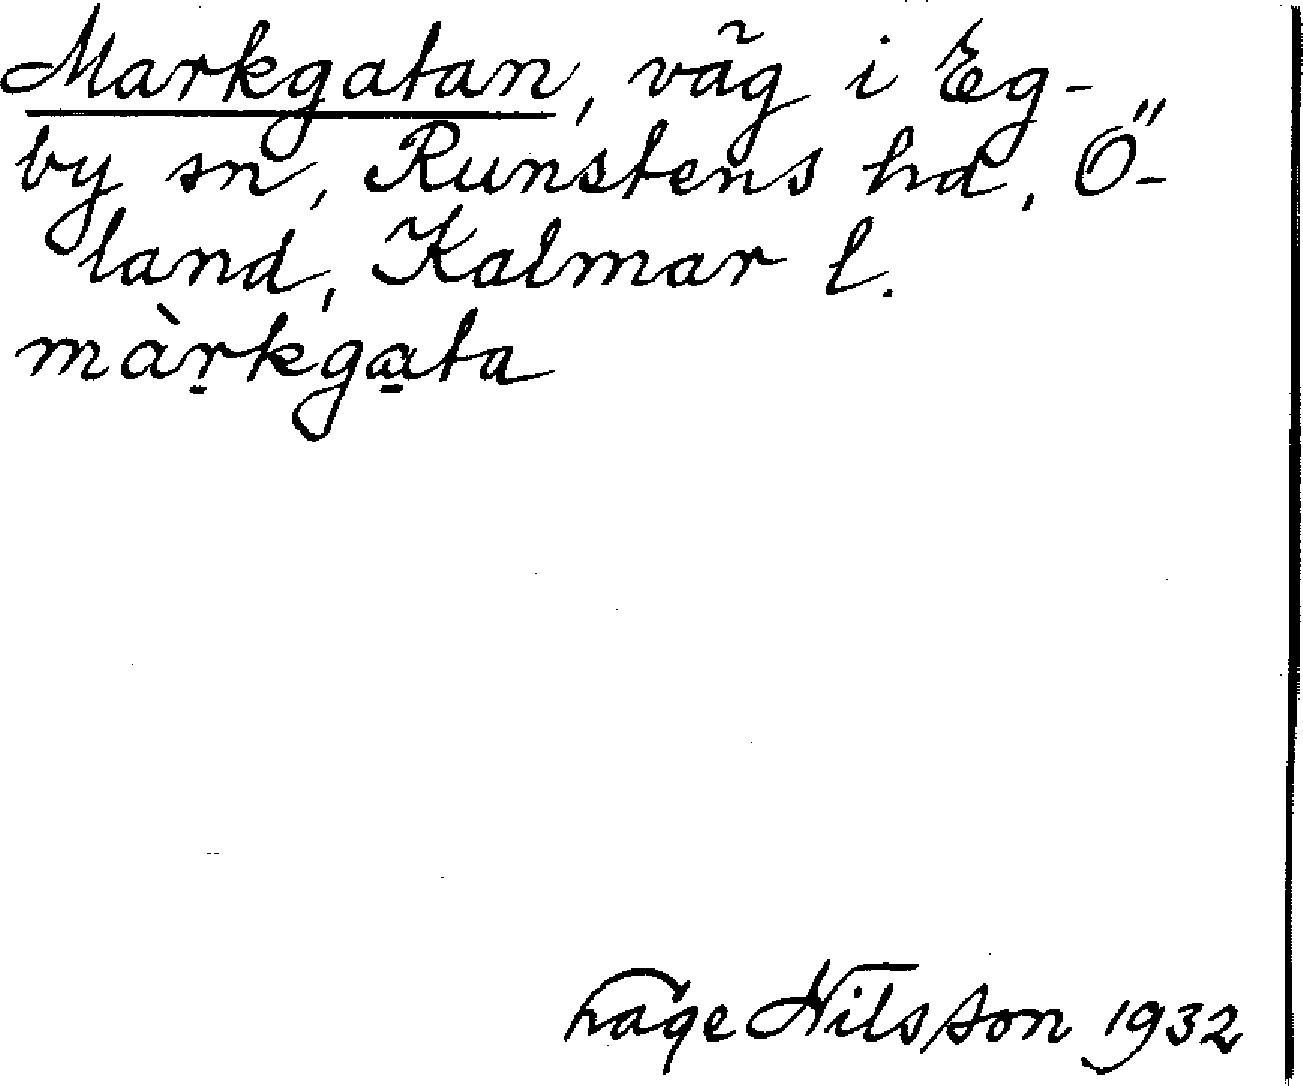 Markgatan, väg i Eg-
by sn, Runstens hd, Ö-
land, Kalmar l.
màr̠kga̠ta
Lage Nilsson 1932